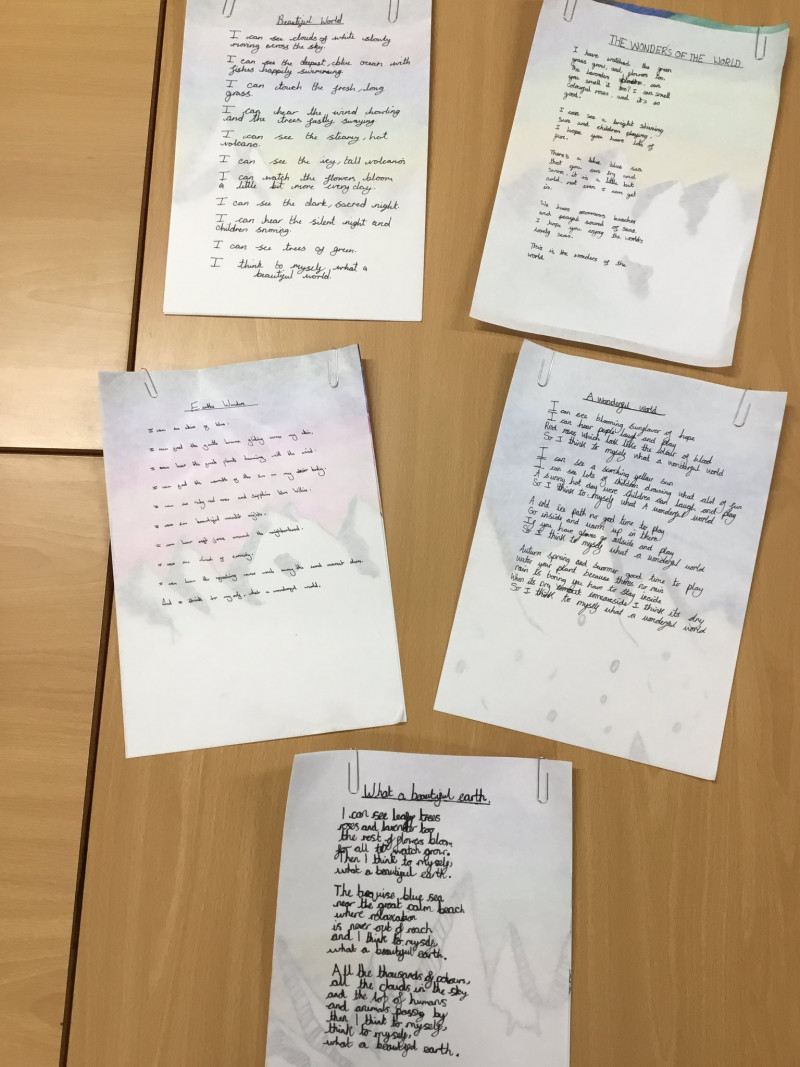 Beautiful World
I can see clouds of white slowly
moving across the sky.
I can see the deepest, blue ocean with
fishes happily swimming
I can touch the fresh, long
grass.
I can hear the wind howling
and the trees fastly swaying
I can see the steamy, hot
volcano.
I can see the icy, tall volcano's
I can watch the flowers bloom
a little bit more every day.
I can see the dark, sacred night.
I can hear the silent night and
children snoring.
I can see trees of green.
I think to myself, what a
beautiful world.
THE WONDERS OF THE WORLD
I have watched the green
grass grow, and flowers too.
The lavender can
you smell it too? I can smell
colourful roses, and it's so
good!
I can see a bright shining
Sun and children playing,
I hope you have lots of
fun.
There's a blue blue sea
that you can try and
swim, it is a little bit
cold, not even I can get
in.
We have enormous beaches
and peaceful sound of seas.
I hope you enjoy the world's
lovely seas.
This is the wonders of the
world
Earths Wonders
I can see skies of blue.
I can feel the gentle breeze gliding across my skin.
I can hear the great plants dancing with the wind.
I can feel the warmth of the sun on my body.
I can see ruby red roses and sapphire blue lillies.
I can see beautiful moonlit nights.
I can hear around the neighbourhood.
I can see kind of
I can hear the waves
And I think to my self, what a wonderful world.
A wonderful world
I can see blooming sunflower of hope
I can hear people laugh and play
Red roses which look like the colour of blood
So I think to myself what a wonderful world
I can see a scorching yellow sun
I can see lots of children drawing what alot of fun
A sunny hot day were children can laugh and play
So I think to myself what A wonderful world
A cold ice path no good time to play
Go inside and warm up in there
If you have gloves go outside and play
So I think to myself what a wonderful world
Autumn spring and summer good time to play
water your plant because theres no rain
rain is boring you have to stay inside
When its dry someoneside I think its dry
So I think to myself what a wonderful world
What a beautiful earth.
I can see leafy trees
roses and lavender too
the rest of flowers bloom
for all to watch grow.
Then I think to myself,
what a beautiful earth.
The turquise blue sea
near the great calm beach
where relaxation
is never out of reach
and I think to myself
what a beautiful earth.
All the thousands of colours,
all the clouds in the sky
and the lot of humans
and animals passing by
then I think to myself,
think to myself,
what a beautiful earth.